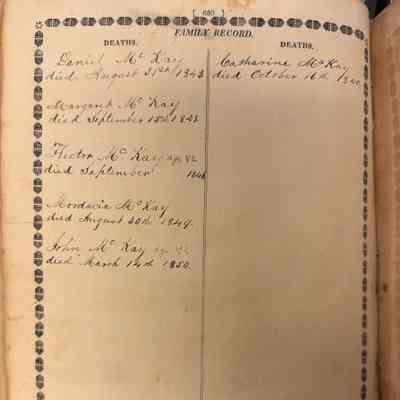 [ 680 ]
FAMILY RECORD.
DEATHS.
Daniel Mc Kay
died August 31st 1843
Margaret Mc Kay
died September 15th 1843
Hector Mc Kay age 82
died September
Mordacia McKay
died August 30th 1849.
John Mc Kay age
died March 14th 1850.
DEATHS.
Catharine McKay
died October 16th